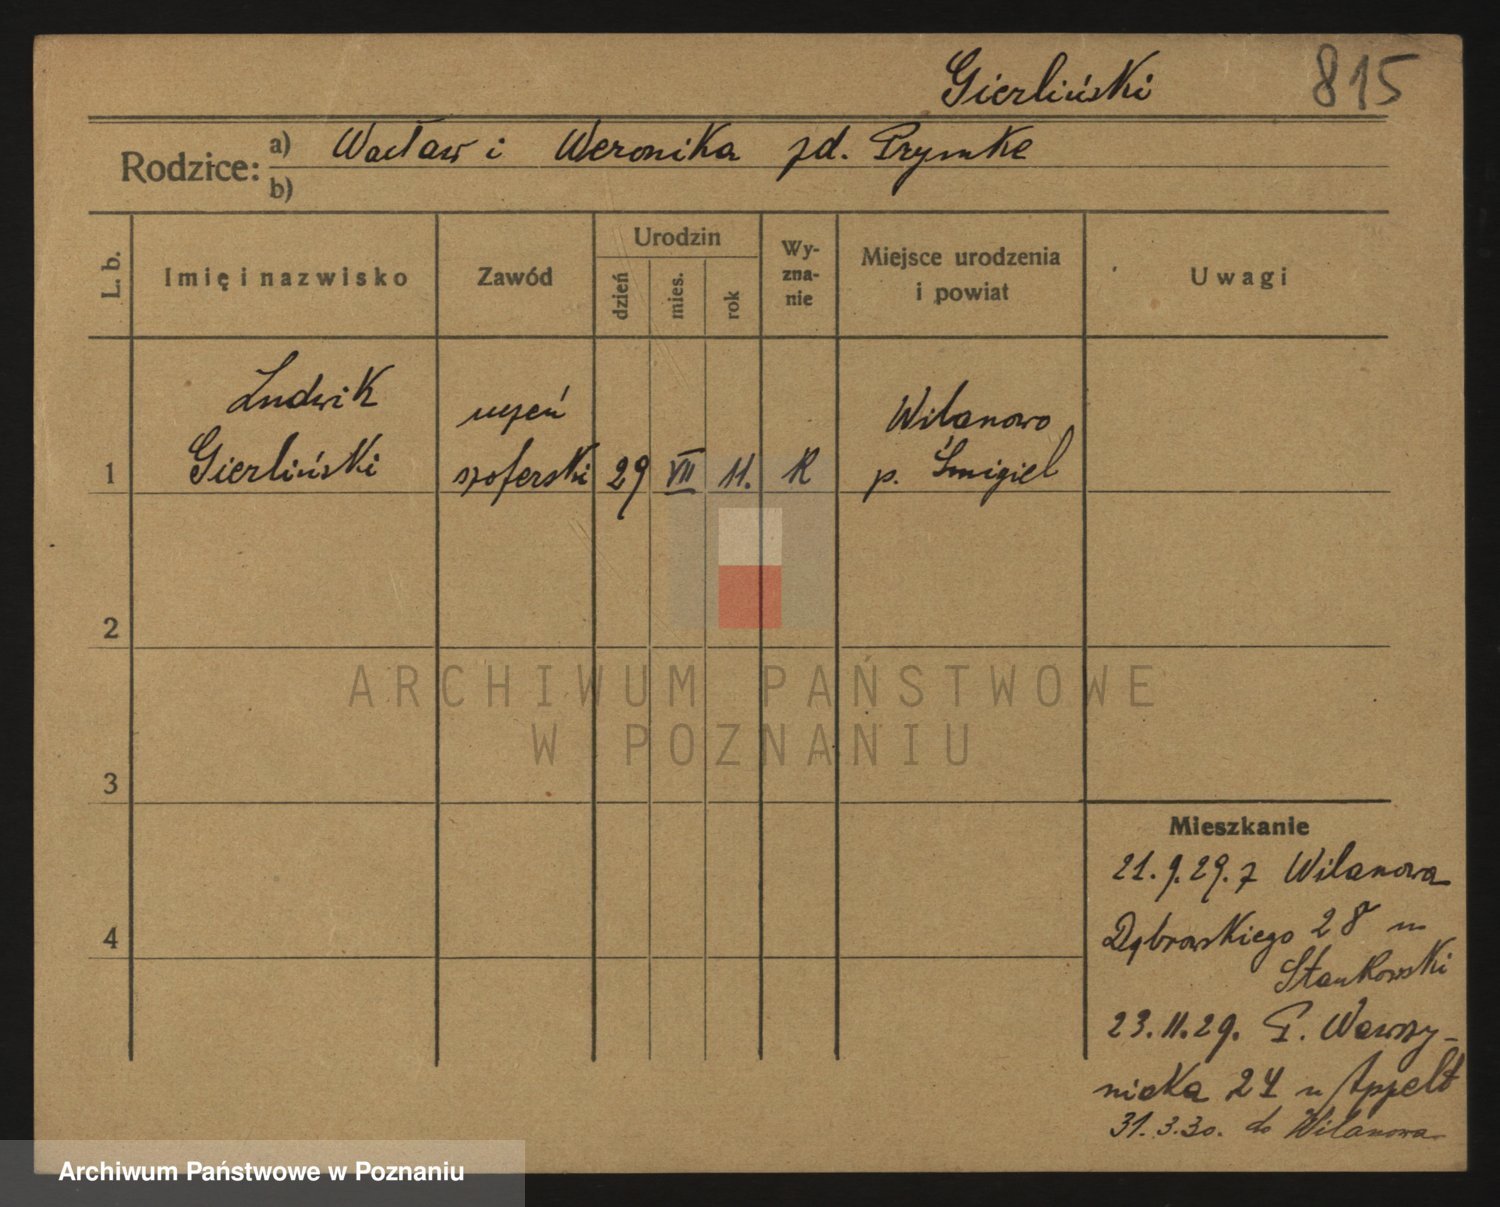 Gierliński 815
Rodzice: a) Wacław i Weronika zd. Prymke
b)
L. b. Imię i nazwisko Zawód Urodzin dzień mies. rok Wy-zna-nie Miejsce urodzenia i powiat Uwagi
Ludwik uczeń Wilanowo
1 Gierliński szoferski 29 VII 11. R p. Śmigiel
2
ARCHIWUM PAŃSTWOWE
W POZNANIU
3
Mieszkanie
21.9.29. z Wilanowa
4 Dąbrowskiego 28 u
Stankowski
23.11.29. P. Wawrzy-
niaka 24 u Appelt
31.3.30. do Wilanowa
Archiwum Państwowe w Poznaniu